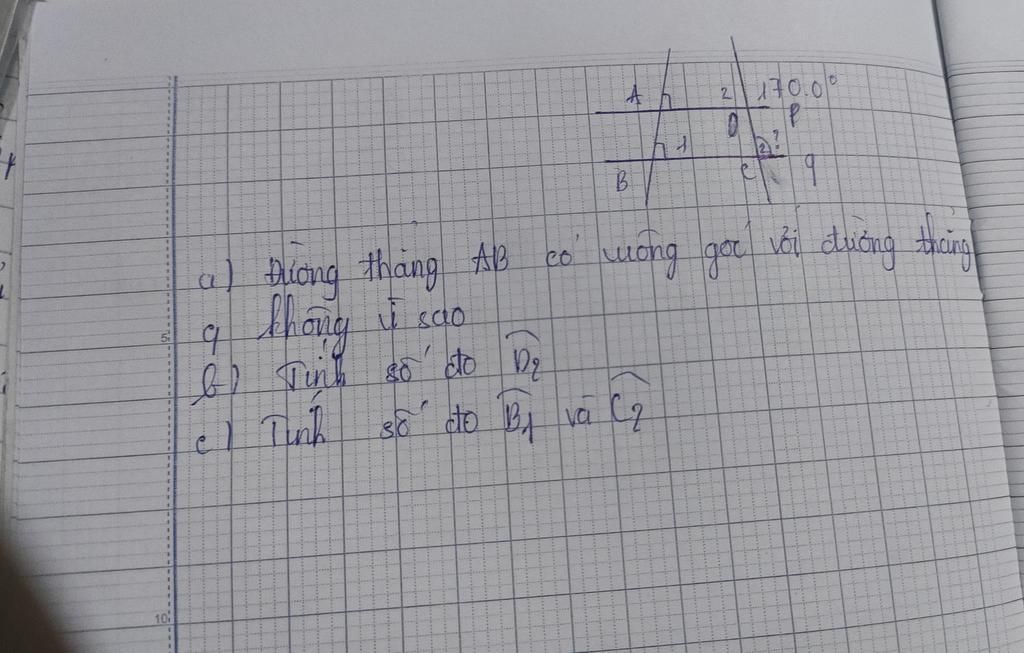 A 2 170.0°
D P
1 2 ?
B C q
a) Đường thẳng AB có vuông góc với đường thẳng
q không vì sao
b) Tính số đo D2
c) Tính số đo B1 và C2
5
10